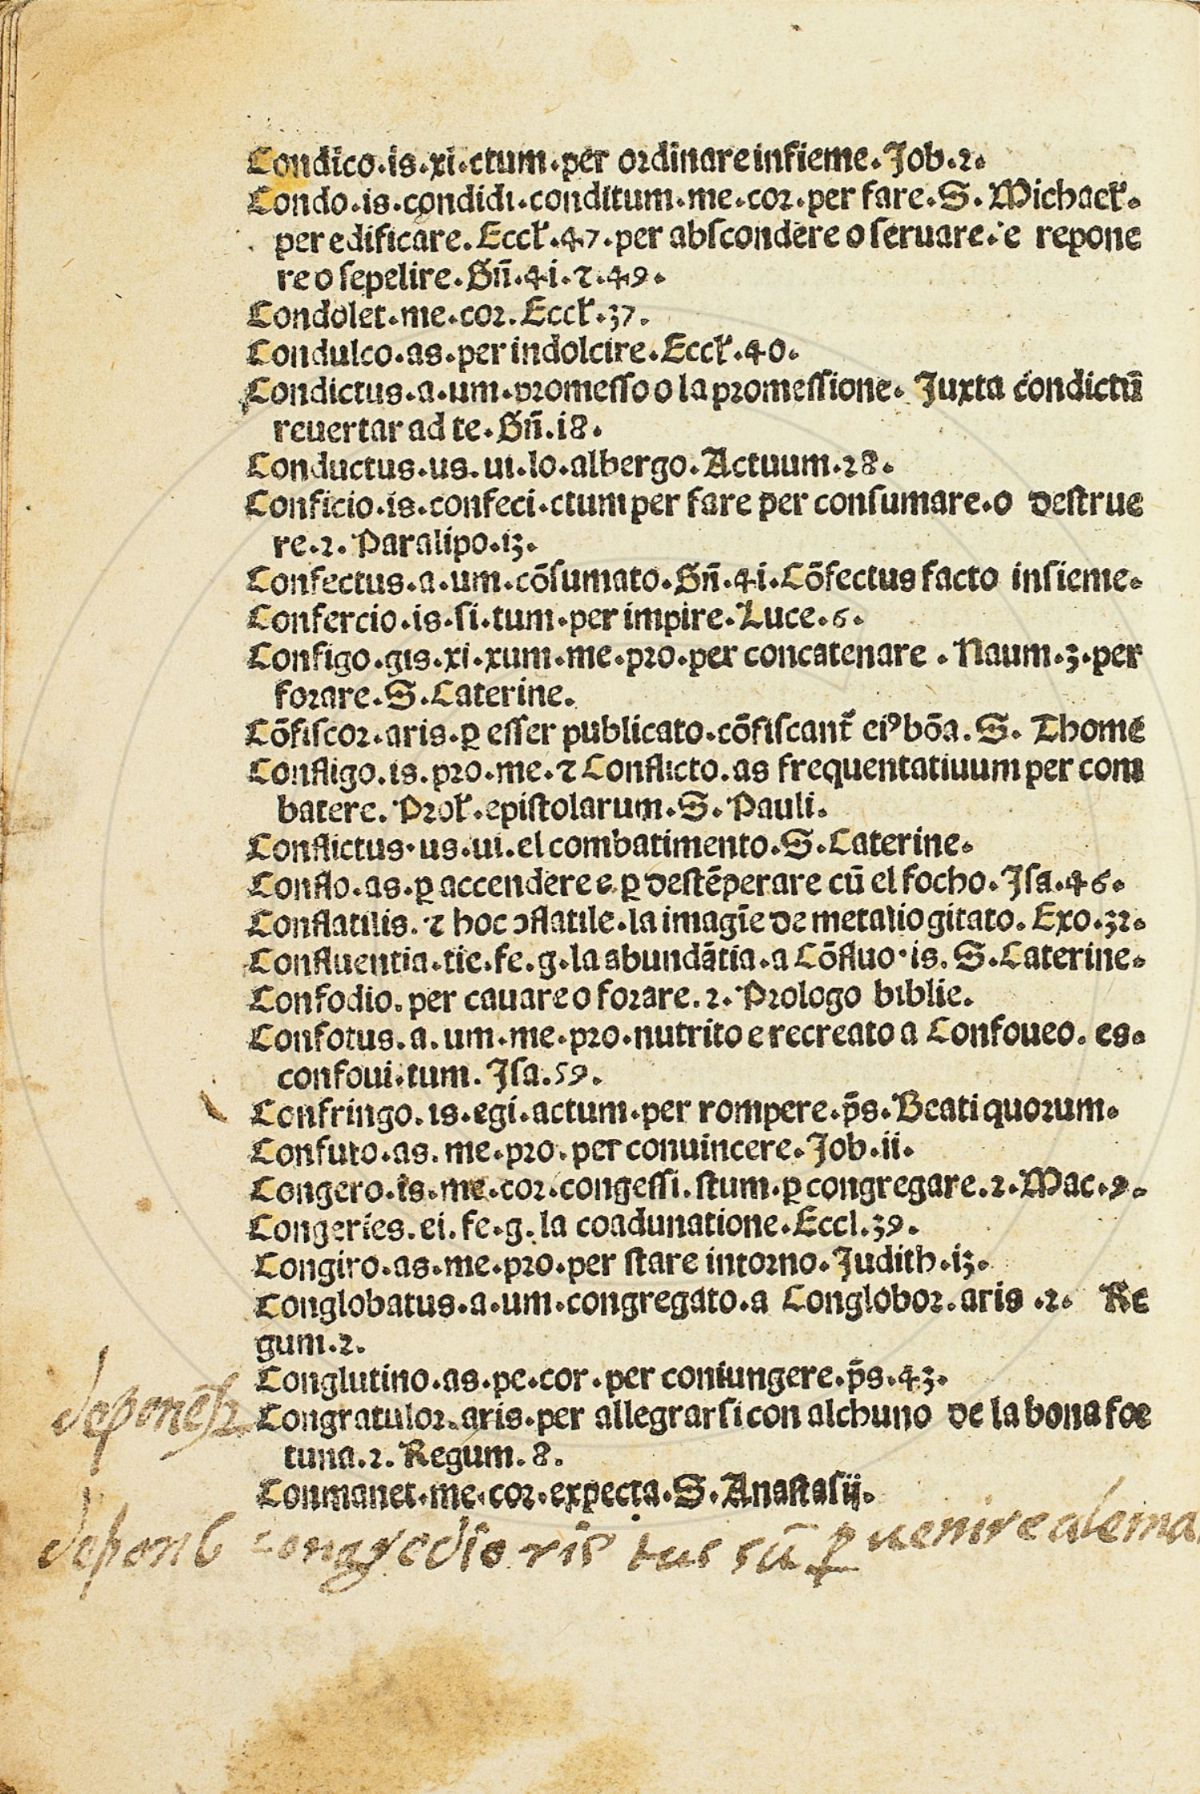 Condico.is.xi.ctum.per ordinare insieme.Job.2.
Condo.is.condidi.conditum.me.cor.per fare.S.Michael̛.
per edificare.Eccl̛.47.per abscondere o seruare.e repone
re o sepelire.Gn̄.41.⁊.49.
Condolet.me.cor.Eccl̛.37.
Condulco.as.per indolcire.Eccl̛.40.
Condictus.a.um.promesso o la promessione.Juxta condictū
reuertar ad te.Gn̄.18.
Conductus.us.ui.lo.albergo.Actuum.28.
Conficio.is.confeci.ctum per fare per consumare.o destrue
re.2.Paralipo.13.
Confectus.a.um.cōsumato.Gn̄.41.Cōfectus facto insieme.
Confercio.is.si.tum.per impire.Luce.6.
Configo.gis.xi.xum.me.pro.per concatenare.Naum.3.per
forare.S.Caterine.
Cōfiscor.aris.ꝑ esser publicato.cōfiscant᷑ eiꝰ bōa.S.Thome
Confligo.is.pro.me.⁊ Conflicto.as frequentatiuum per com
batere.Prol̛.epistolarum.S.Pauli.
Conflictus.us.ui.el combatimento.S.Caterine.
Conflo.as.ꝑ accendere e ꝑ destēperare cū el focho.Isa.46.
Conflatilis.⁊ hoc ↄflatile.la imagīe de metalio gitato.Exo.32.
Confluentia.tie.fe.g.la abundātia.a Cōfluo.is.S.Caterine.
Confodio.per cauare o forare.2.Prologo biblie.
Confotus.a.um.me.pro.nutrito e recreato a Confoueo.es.
confoui.tum.Isa.59.
Confringo.is.egi.actum.per rompere.p̄s.Beati quorum.
Confuto.as.me.pro.per conuincere.Job.11.
Congero.is.me.cor.congessi.stum.ꝑ congregare.2.Mac.9.
Congeries.ei.fe.g.la coadunatione.Eccl.39.
Congiro.as.me.pro.per stare intorno.Judith.13.
Conglobatus.a.um.congregato.a Conglobor.aris.2. Re
gum.2.
Conglutino.as.pe.cor.per coniungere.p̄s.43.
Congratulor.aris.per allegrarsi con alchuno de la bona foe
tuna.2.Regum.8.
Conmanet.me.cor.expecta.S.Anastasij.
deponb congredio ris tus sū ꝑ uenire alema